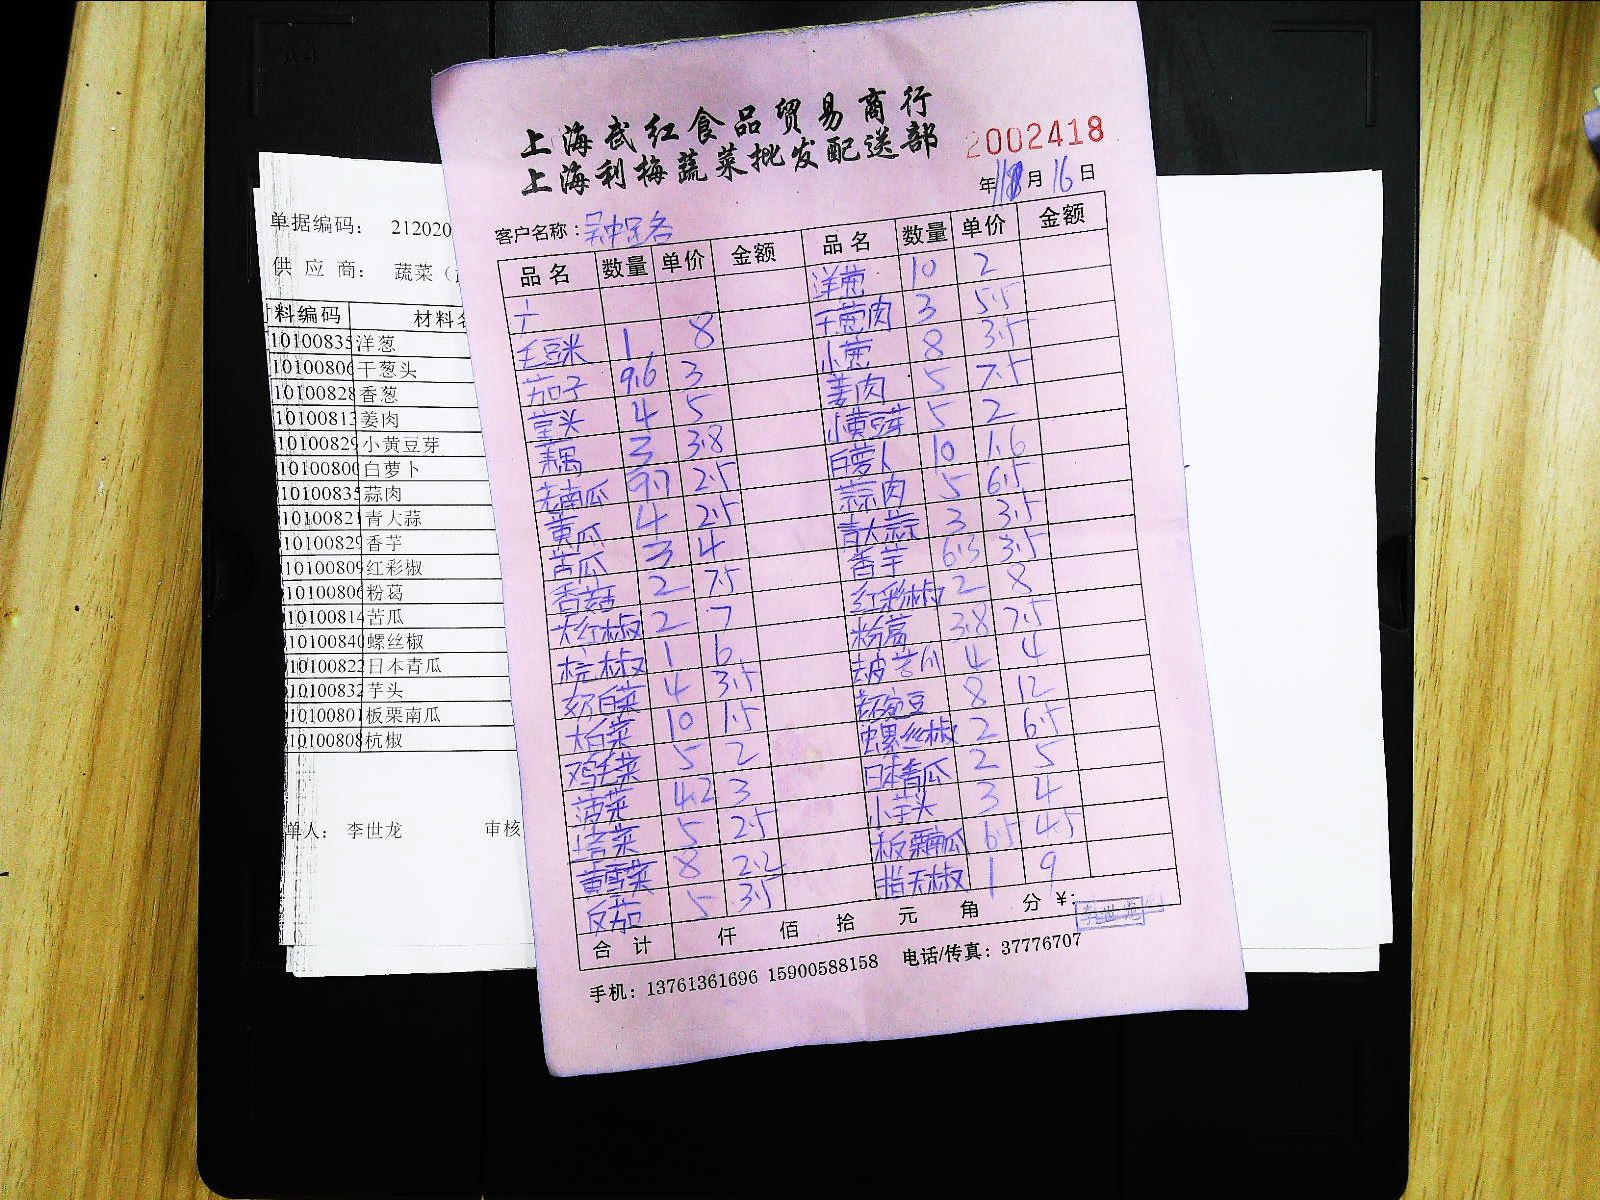 上海武红食品贸易商行
上海利梅蔬菜批发配送部
2002418
年 月 16 日
客户名称：
品名 数量 单价 金额 品名 数量 单价 金额
洋葱 10 2
干葱肉 3 5.5
毛豆米 1 8 小葱 8 3.5
茄子 9.6 3 姜肉 5 7.5
4 5 小黄豆芽 5 2
藕 3 3.8 白萝卜 10 1.6
老南瓜 9.7 2.5 蒜肉 5 6.5
黄瓜 4 2.5 青大蒜 3 3.5
苦瓜 3 4 香芋 6.3 3.5
香菇 2 7.5 红彩椒 2 8
大红椒 2 7 粉葛 3.8 7.5
杭椒 1 6 4 4
奶白菜 4 3.5 豌豆 8 12
大白菜 10 1.5 螺丝椒 2 6.5
鸡毛菜 5 2 日本青瓜 2 5
菠菜 4.2 3 小芋头 3 4
塔菜 5 2.5 板栗南瓜 6.5 4.5
8 2.2 指天椒 1 9
5 3.5
合计 仟 佰 拾 元 角 分 ￥:
李世龙
手机：13761361696 15900588158 电话/传真：37776707
单据编码： 212020
供应商： 蔬菜（
料编码 材料名
10100835 洋葱
10100806 干葱头
10100828 香葱
10100813 姜肉
10100829 小黄豆芽
10100800 白萝卜
10100835 蒜肉
10100821 青大蒜
10100829 香芋
10100809 红彩椒
10100806 粉葛
10100814 苦瓜
10100840 螺丝椒
10100822 日本青瓜
10100832 芋头
10100801 板栗南瓜
10100808 杭椒
单人： 李世龙 审核